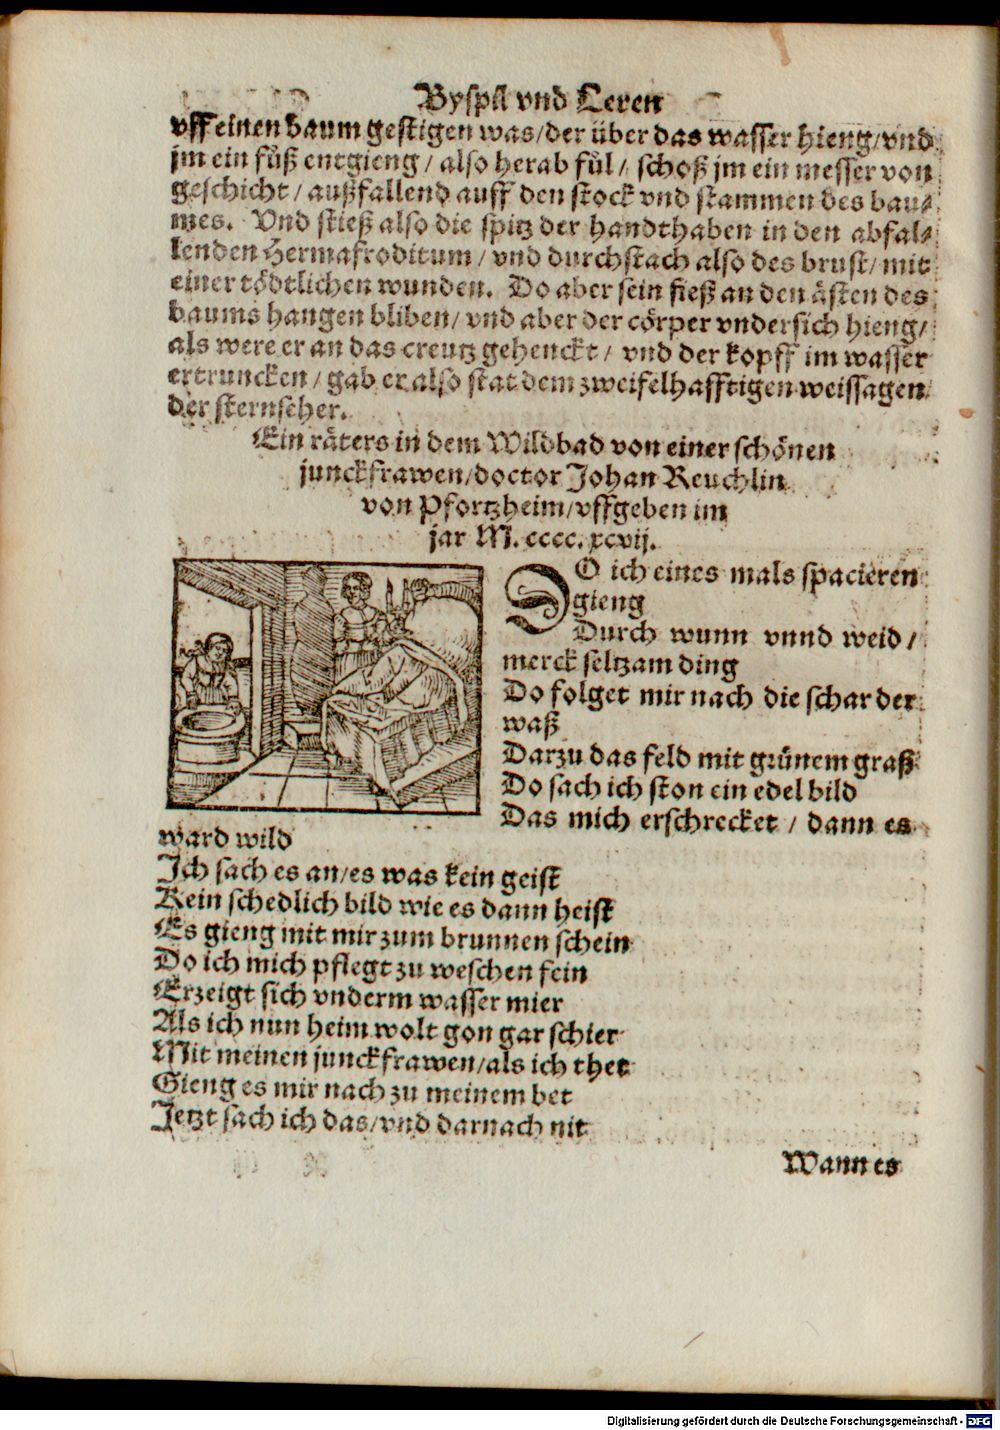 Byspil vnd Leren
vff einen baum gestigen was/der über das wasser hieng/vnd
jm ein fůß entgieng/ also herab fül/ schoß jm ein messer von
geschicht/ außfallend auff den stock vnd stammen des bau⸗
mes. Vnd stieß also die spitz der handthaben in den abfal⸗
lenden Hermafroditum/ vnd durchstach also des brust/ mit
einer tödtlichen wunden. Do aber sein fieß an den ästen des
baums hangen bliben/ vnd aber der cörper vndersich hieng/
als were er an das creutz gehenckt/ vnd der kopff im wasser
ertruncken/ gab er also stat dem zweifelhafftigen weissagen
der sternseher.
Ein räters in dem Wildbad von einer schönen
junckfrawen/doctor Johan Reuchlin
von Pfortzheim/vffgeben im
jar M. cccc. xcvij.
DO ich eines mals spacieren
gieng
Durch wunn vnnd weid/
merck seltzam ding
Do folget mir nach die schar der
waß
Darzu das feld mit grünem graß
Do sach ich ston ein edel bild
Das mich erschrecket/ dann es
ward wild
Ich sach es an/es was kein geist
Kein schedlich bild wie es dann heist
Es gieng mit mir zum brunnen schein
Do ich mich pflegt zu weschen fein
Erzeigt sich vnderm wasser mier
Als ich nun heim wolt gon gar schier
Mit meinen junckfrawen/als ich thet
Gieng es mir nach zu meinem bet
Jetzt sach ich das/vnd darnach nit
Wann es
Digitalisierung gefördert durch die Deutsche Forschungsgemeinschaft - DFG